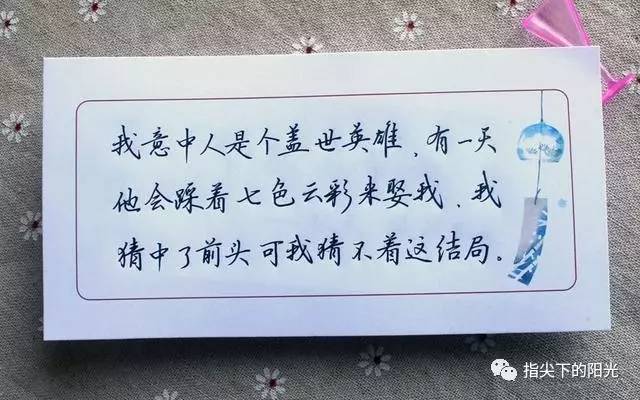 我意中人是个盖世英雄，有一天
他会踩着七色云彩来娶我，我
猜中了前头可我猜不着这结局。
指尖下的阳光